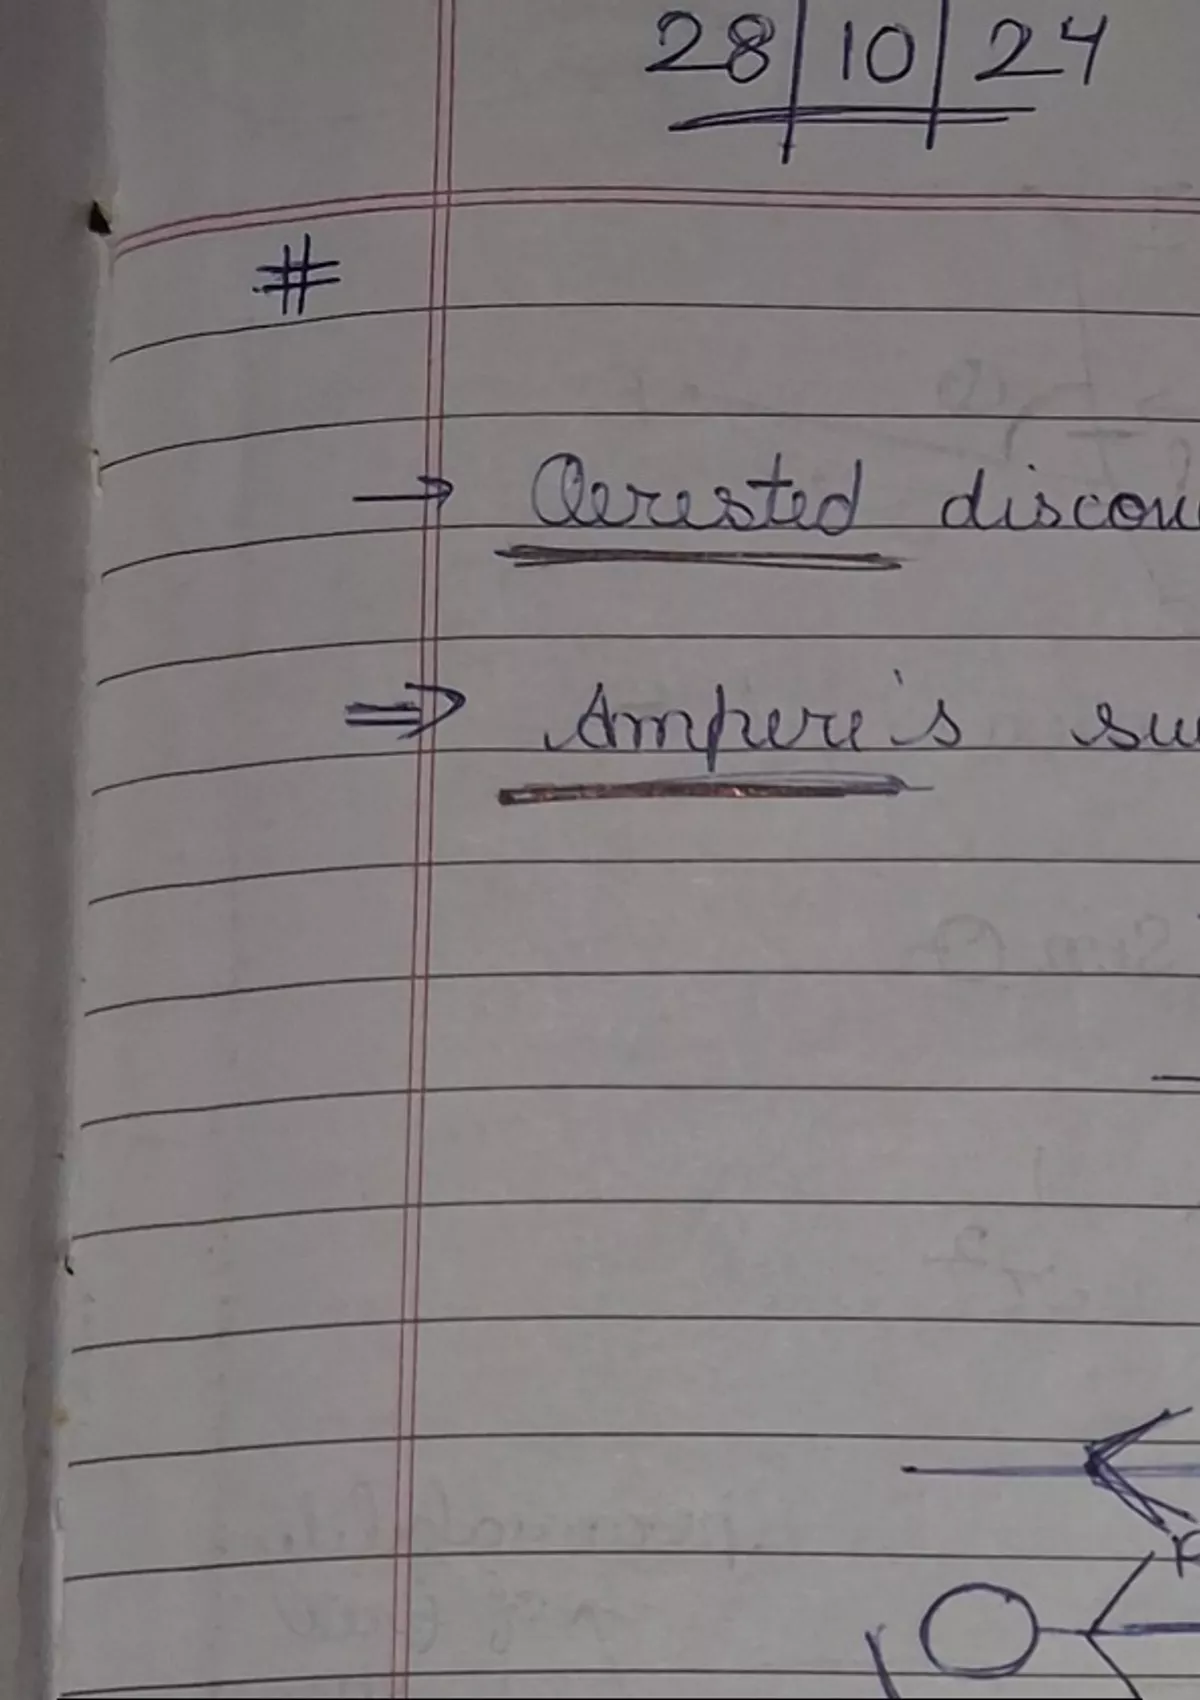 28|10|24
#
→ Oerested discou
⇒ Ampere's su